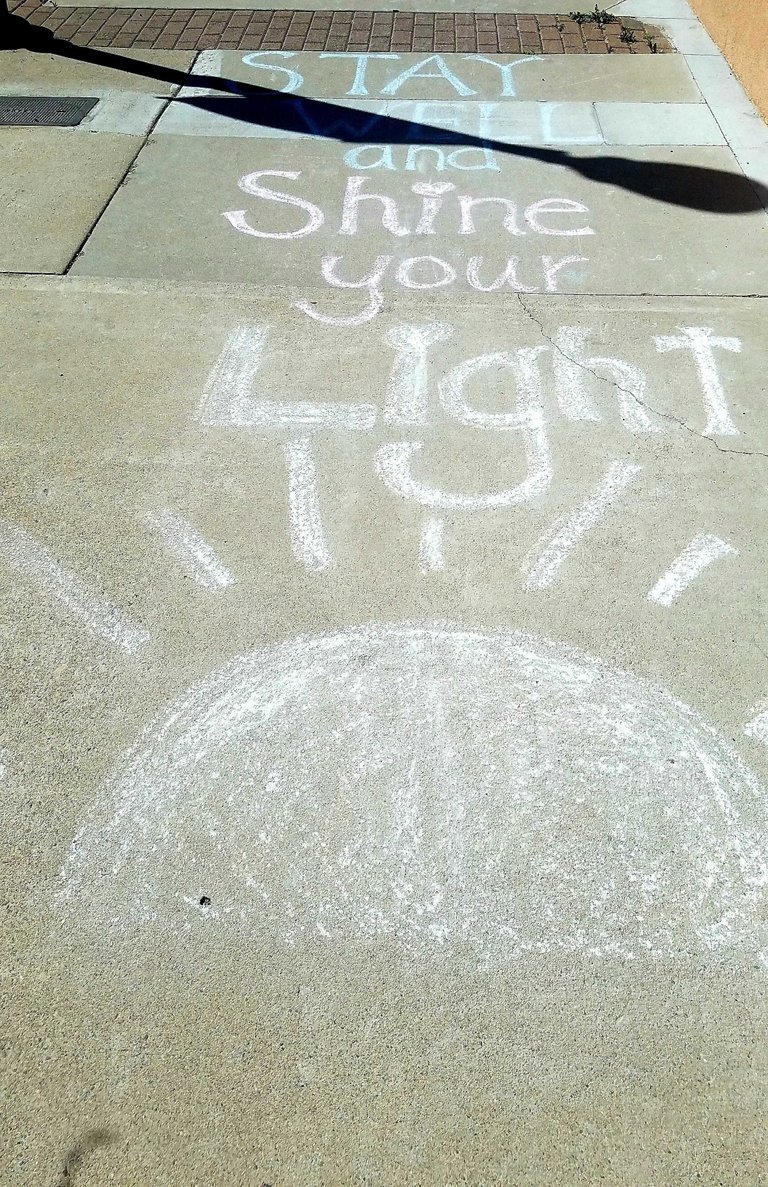 STAY
WELL
and
Shine
your
Light